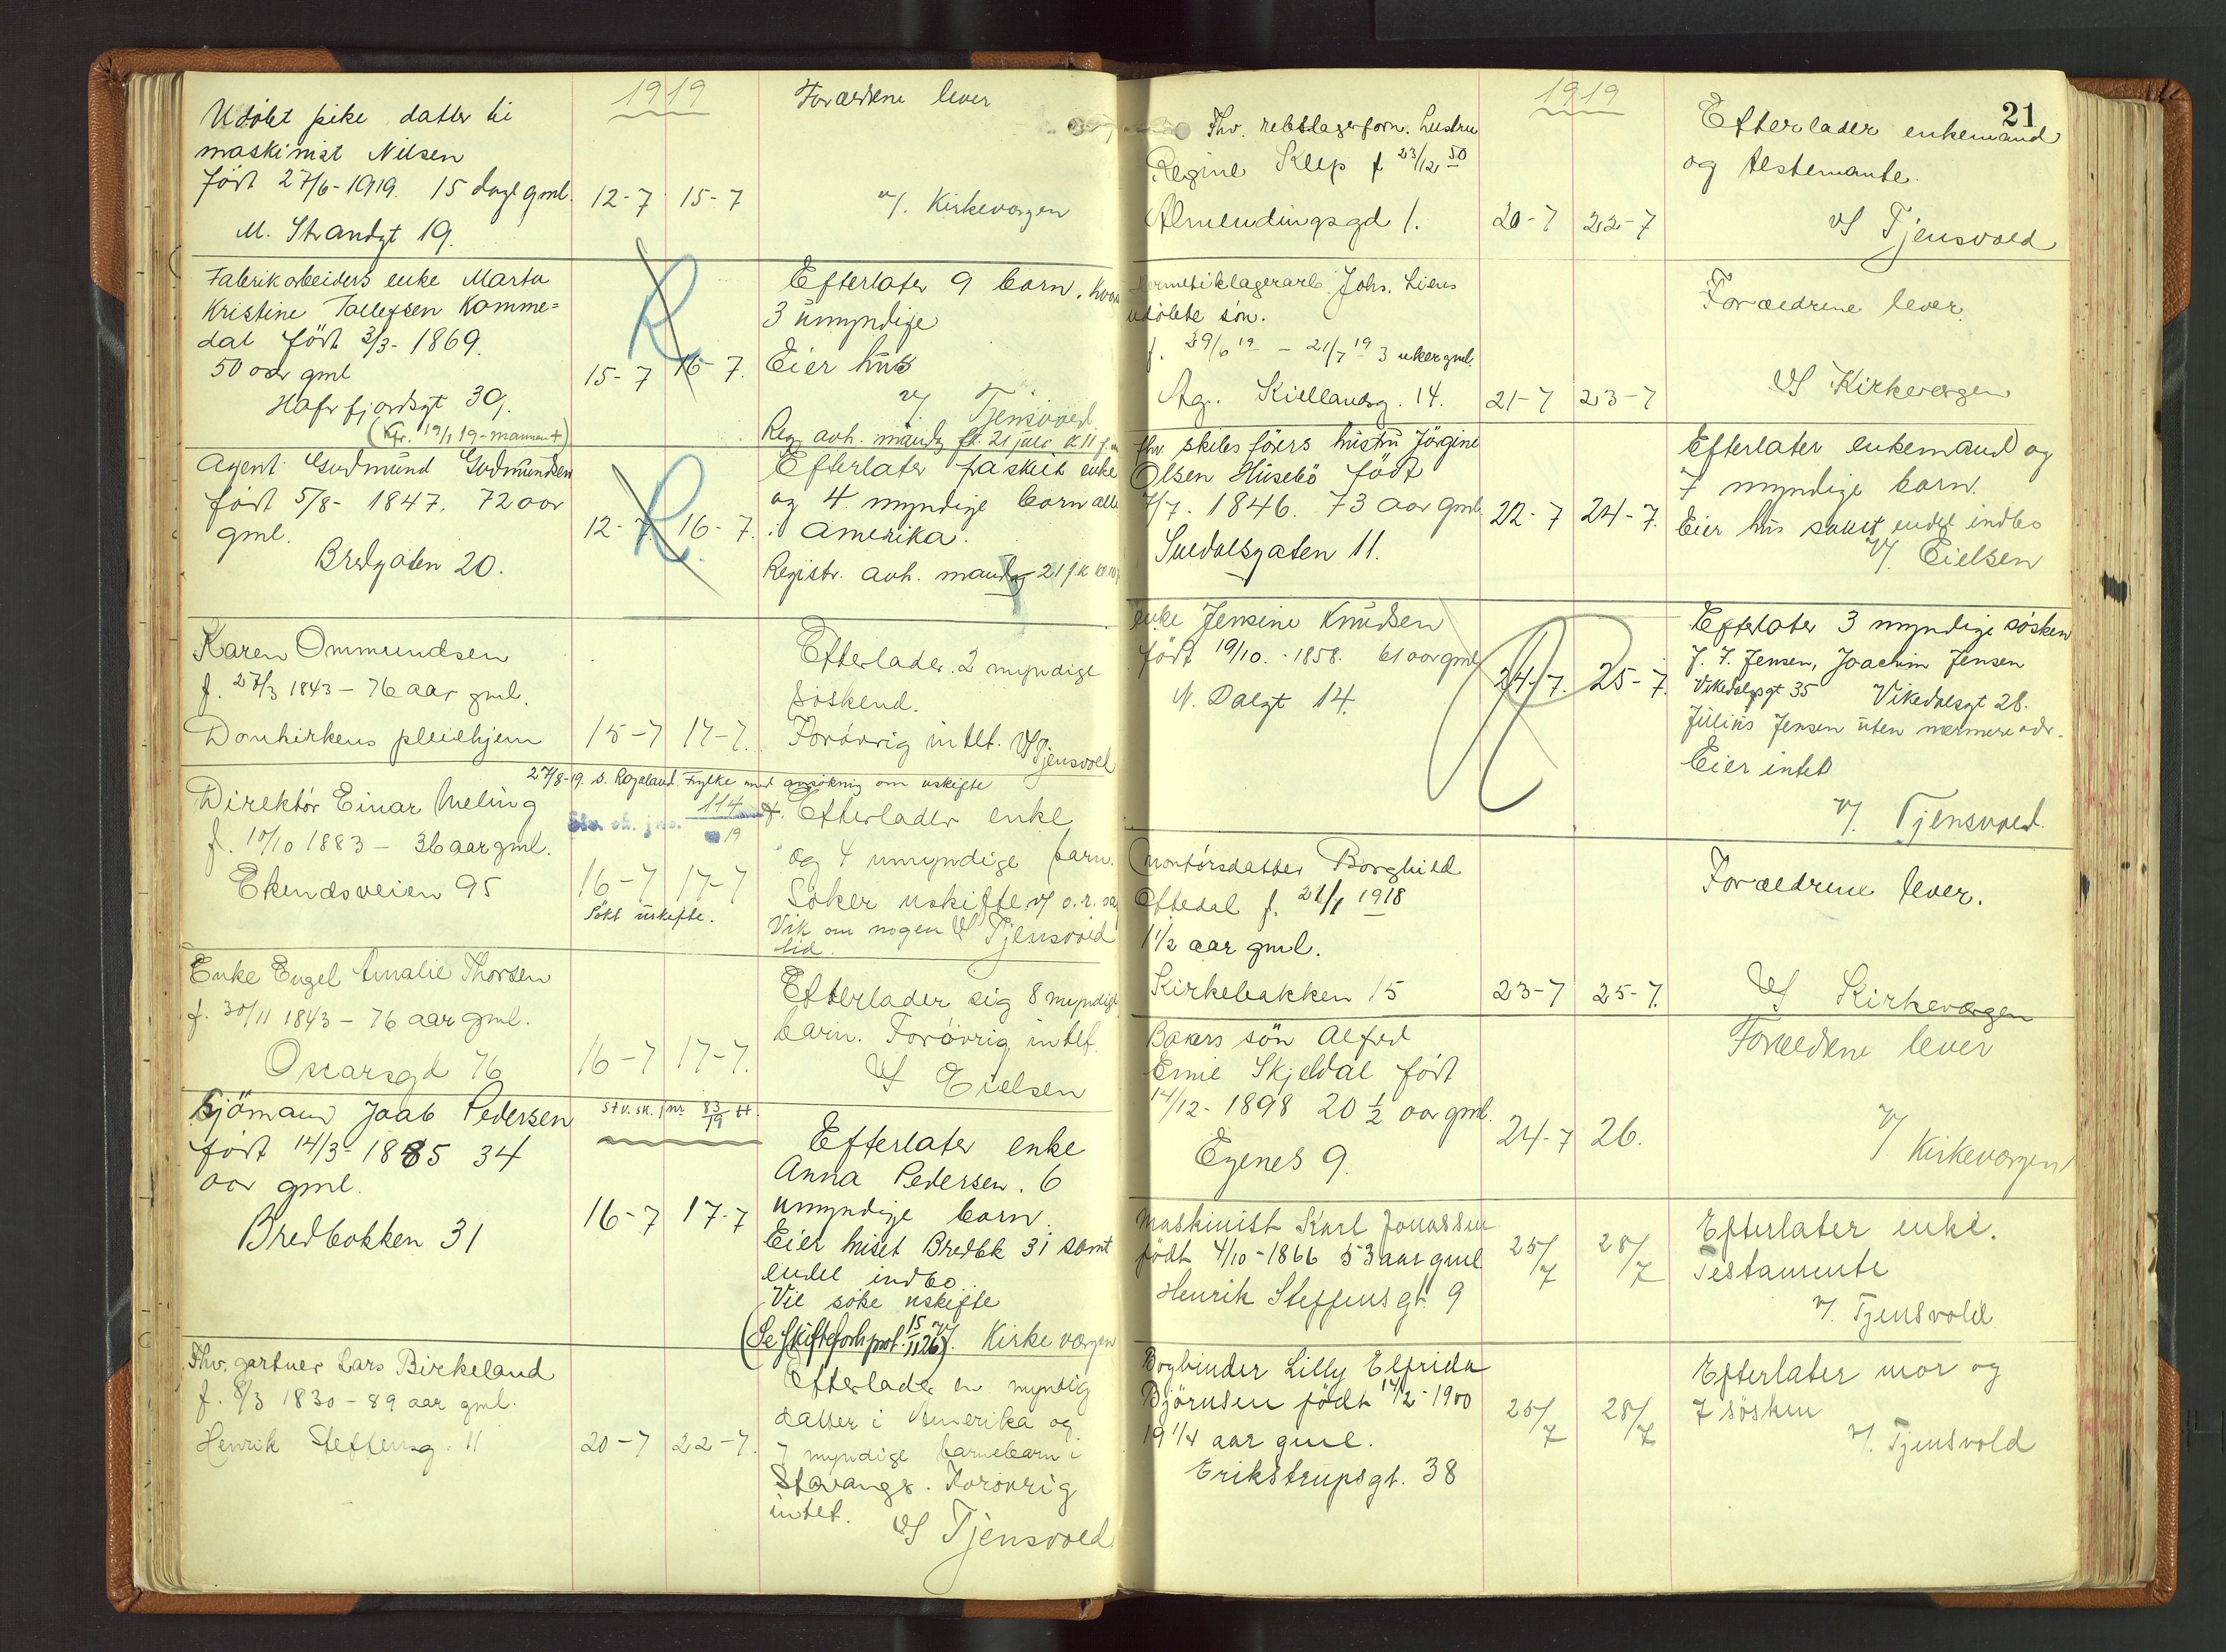 1919
Udöbt pike datter til
maskinist Nilsen
Født 27/6-1919. 15 dage gml.
M. Strandgt 19.
12-7 15-7
Forældrene lever
v/. Kirkevergen
Fabrikarbeiders enke Marta
Kristine Tollefsen Komme=
dal født 3/3- 1869.
50 aar gml
Hafrsfjordsgt 30.
(Kfr. 19/1 19-mannen +)
15-7 16-7.
R
Efterlater 9 barn, hvorav
3 ümyndige
Eier hus
v/. Tjensvold
Reg. avh. mandag 21 juli kl 11 f.m
Agent Gudmünd Gudmündsen
født 5/8- 1847. 72 aar
gml.
Bredgaten 20.
12-7. 16-7.
R.
Efterlater fraskilt enke
og 4 myndige barn alle
i Amerika.
Registr. avh. mandag 21
Karen Ommundsen
f. 27/3 1843 - 76 aar gml.
Domkirkens pleiehjem
15-7 17-7.
Efterlader 2 myndige
söskend.
Forövrig intet. v/ Tjensvold
27/8-19. s. Rogaland Fylke med ansökning om uskifte
Direktör Einar Meling
f. 10/10 1883 - 36 aar gml.
Ekendsveien 95
114
19
16-7 17-7
Sökt üskifte.
Efterlader enke
og 4 umyndige barn.
Söker uskifte v/ o.r.sag
Vik om nogen v/ Tjensvold
tid.
Enke Engel Amalie Thorsen
f. 30/11 1843 - 76 aar gml.
Oscarsgd 76
16-7 17-7.
Efterlader sig 8 myndige
barn. Forövrig intet.
v/ Eielsen
Sjömand Jaab Pedersen
født 14/3- 1885 34
aar gml.
Bredbakken 31
Stv. sk. jnr 83/19 tt.
16-7 17-7
Efterlater enke
Anna Pedersen. 6
umyndige barn.
Eier hüset Bredbk 31 samt
endel indbo
Vil söke uskifte
(Se Skifteforh.prot. 15/11 26). v/. Kirkevergen
Fhv. gartner Lars Birkeland
f. 8/3 1830 - 89 aar gml.
Henrik Steffensg. 11
20-7 22-7.
Efterlader en myndig
datter i Amerika og
7 myndige barnebarn i
Stavanger. Forövrig
intet.
v/ Tjensvold
21
1919
Fhv. rebslagerform. hustru
Regine Klep f 23/12 50
Almendingsgd 1.
20-7 22-7
Efterlader enkemand
og testemante.
v/ Tjensvold
Hermetiklagerarb. Johs. Liens
udöbte sön.
f. 29/6 19 - 21/7 19 3 uker gml.
Ag. Kiellandsg. 14.
21-7 23-7
Forældrene lever.
v/ Kirkevergen
fhv skibsförers hüstrü Jörgine
Olsen Hüsebö født
7/7. 1846. 73 aar gml
Suldalsgaten 11.
22-7 24-7.
Efterlater enkemand og
7 myndige barn.
Eier hüs samt endel indbo
v/. Eielsen
enke Jensine Knüdsen
født 19/10.-1858. 61 aar gml
N. Dalgt 14.
24-7. 25-7.
Efterlater 3 myndige søsken
J. J. Jensen, Joachim Jensen
Vikedalsgt 35 Vikedalsgt 28.
Jülius Jensen üten nærmere adr.
Eier intet
v/. Tjensvold.
Montörsdatter Borghild
Oftedal f. 21/1 1918
1 1/2 aar gml.
Kirkebakken 15
23-7 25-7.
Forældrene lever.
v/ Kirkevergen
Bakers sön Alfred
Emil Skjeldal født
14/12- 1898 20 1/2 aar gml.
Egenes 9.
24-7 26.
Forældrene lever
v/ Kirkevergen
Maskinist Karl Jonassen
født 4/10-1866 53 aar gml
Henrik Steffensgt. 9
25/7 28/7
Efterlater enke.
Testamente
v/. Tjensvold
Bogbinder Lilly Elfrida
Björnsen født 14/2-1900
19 1/4 aar gml.
Erikstrupsgt. 38
25/7 28/7
Efterlater mor og
7 søsken
v/. Tjensvold